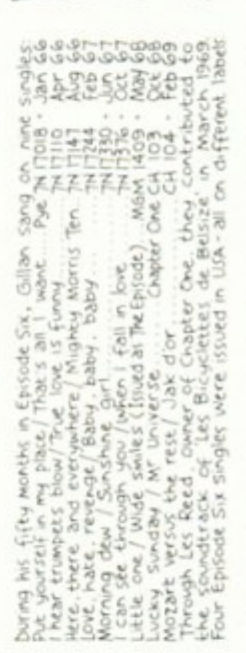 During his fifty months in Episode Six, Gillan sang on nine singles:
Put yourself in my place/That's all I want Pye 7N 17018 · Jan 66
I hear trumpets blow/True love is funny 7N 17110 Apr 66
Here, there and everywhere/Mighty Morris Ten 7N 17147 Aug 66
Love, hate, revenge/Baby, baby, baby 7N 17244 Feb 67
Morning dew/Sunshine girl 7N 17330 · Jun 67
I can see through you/When I fall in love 7N 17376 · Oct 67
Little one/Wide smiles (Issued as The Episode) MGM 1409 · May 68
Lucky Sunday/Mr Universe Chapter One CH 103 Oct 68
Mozart versus the rest/Jak d'or CH 104 · Feb 69
Through Les Reed, owner of Chapter One, they contributed to
the soundtrack of 'Les Bicyclettes de Belsize' in March 1969.
Four Episode Six singles were issued in USA - all on different labels